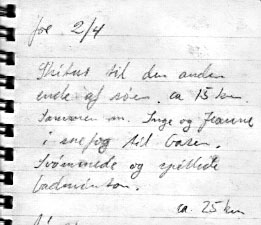 fre 2/4
Skitur til den anden
ende af søen. ca 15 km.
Sammen m. Inge og Jeanne
i snefog til basen.
Svømmede og spillede
badminton.
ca. 25 km